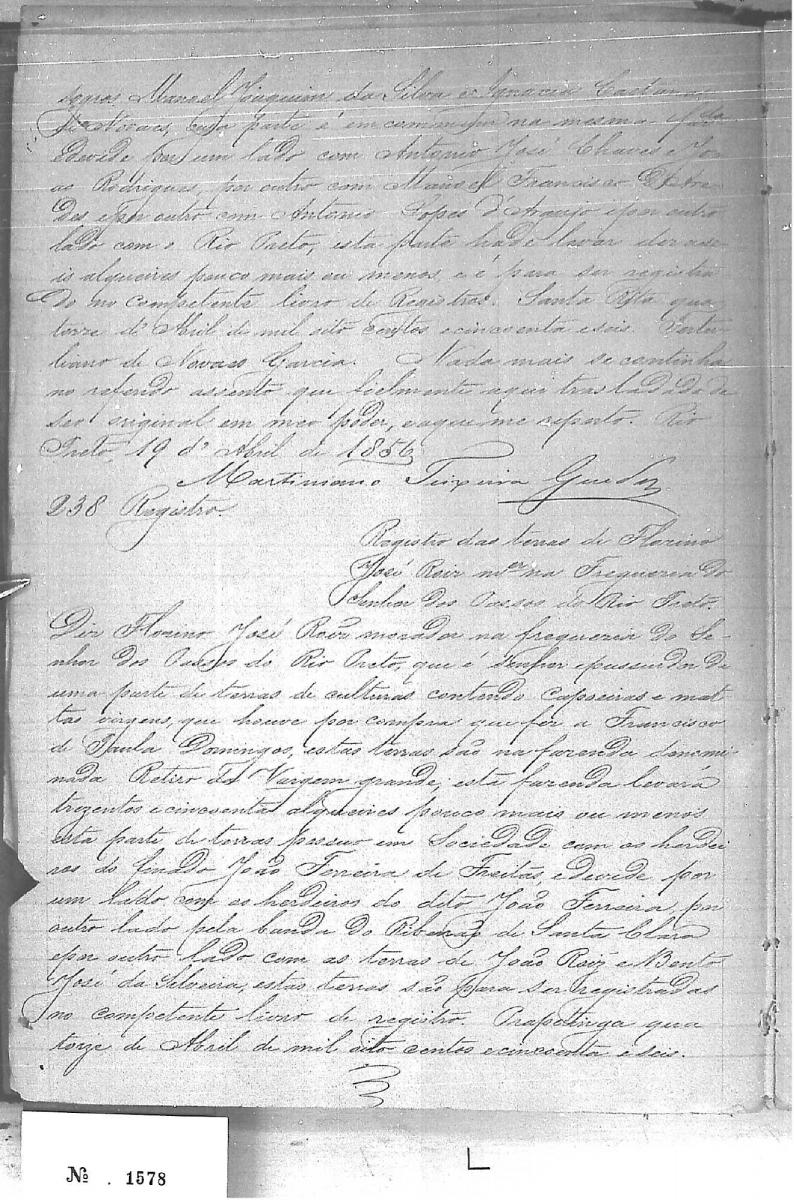 sogros Manoel Joaquim da Silva e Ignacia Caetana
cuja parte é em commum na mesma
edevide por um lado com Antonio José Chaves e Jo-
as Rodrigues, por outro com Manoel Francisco
des epor outro com Antonio Lopes d'Araujo epor outro
lado com o Rio Preto, esta parte hade levar dezase-
is alqueires pouco mais ou menos, e é para ser registra
do no competente livro de Registros. Santa Rita qua-
torze d'Abril de mil oito centos ecincoenta eseis. Forta-
liano de Novaes Garcia. Nada mais se continha
no referido assento que fielmente aqui trasladado de
seo original em meo poder, eaque me reporto. Rio
Preto, 19 d'Abril de 1856
Martiniano Teixeira Guedes
238 Registro.
Registro das terras de Florino
José Roiz mor na Freguezia do
Senhor dos Passos do Rio Preto.
Diz Florino José Roiz morador na freguezia do Se-
nhor dos Passos do Rio Preto, que é Senhor epussuidor de
uma parte de terras de culturas contendo capoeiras e mat
tas virgens, que houve por compra que fez a Francisco
de Paula Domingos, estas terras são na fazenda denomi
nada Retiro da Vargem grande, esta fazenda levará
trezentos ecincoenta alqueires pouco mais ou menos
esta parte de terras possuo em Sociedade com os herdei
ros do finado João Ferreira de Freitas, edevide por
um lado com os herdeiros do dito João Ferreira por
outro lado pela banda do Ribeirão de Santa Clara
epor outro lado com as terras de João Roiz e Bento
José da Silveira, estas terras são para ser registradas
no competente livro de registro. Prapetinga qua
torze de Abril de mil oito centos ecincoenta eseis.
№ . 1578